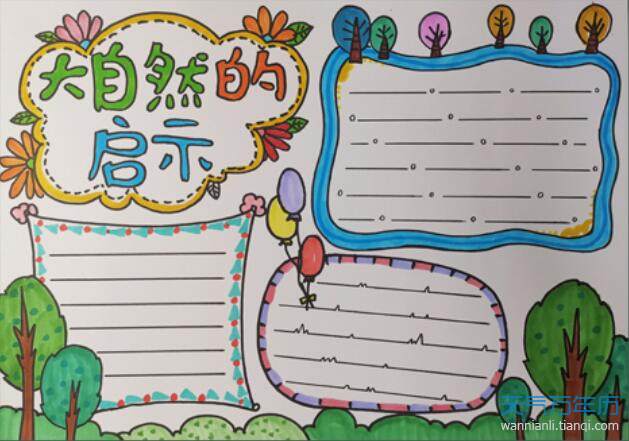 大自然的
启示
天气万年历
wannianli.tianqi.com